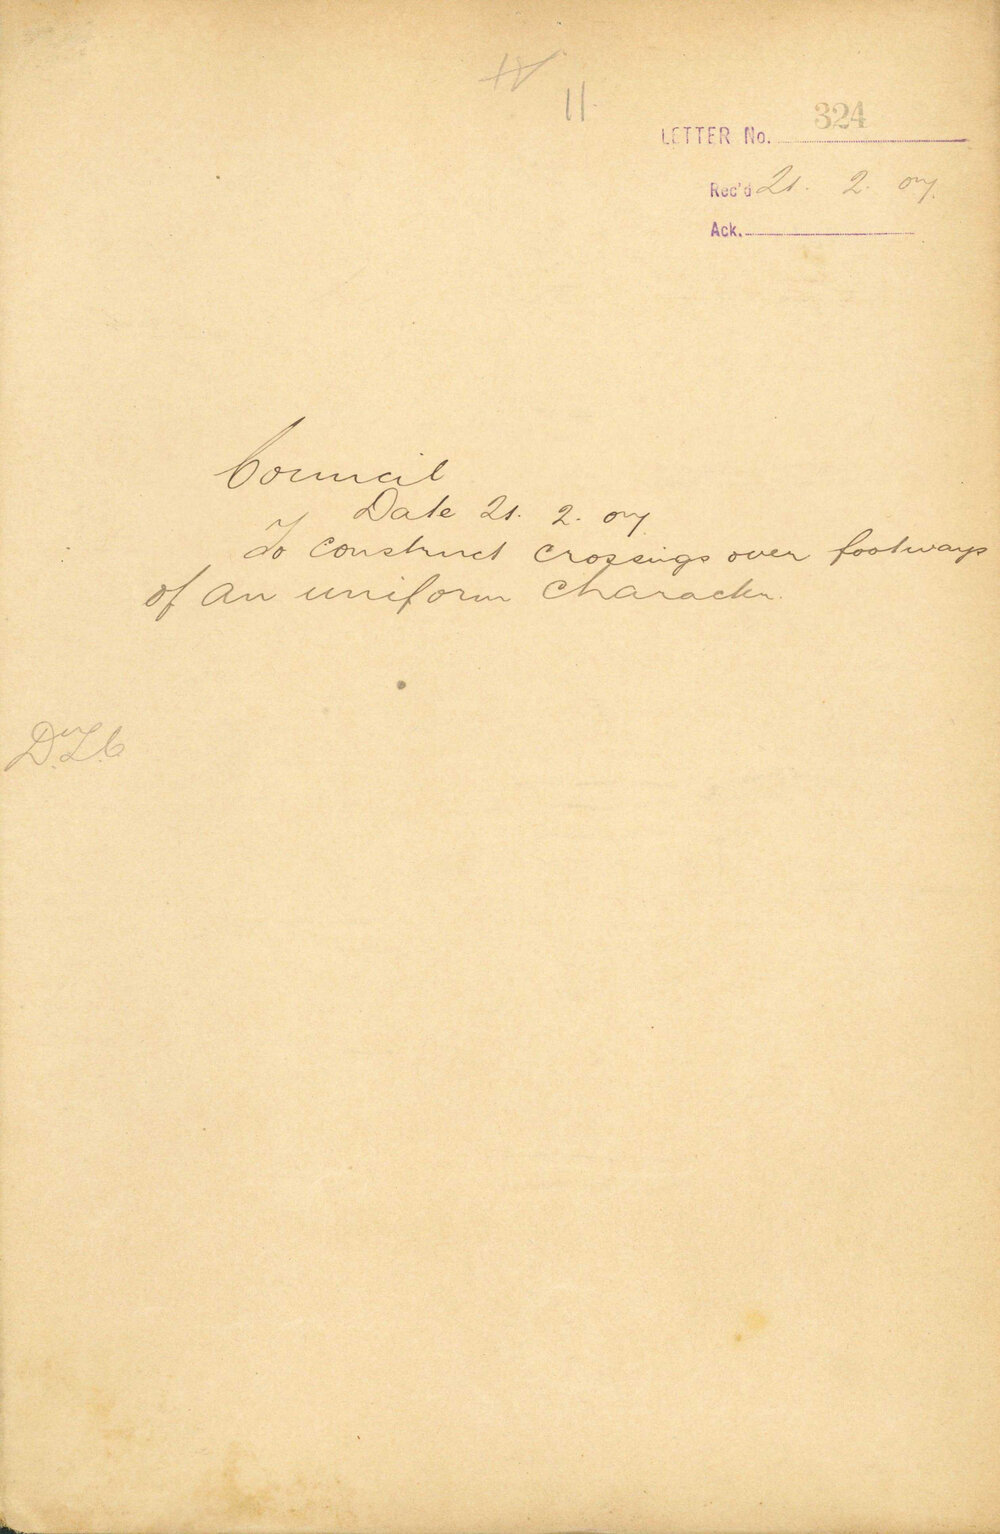 11
324
LETTER No.
Rec'd 21. 2. 07.
Ack.
Council
Date 21. 2. 07
To construct crossings over footways
of an uniform character.